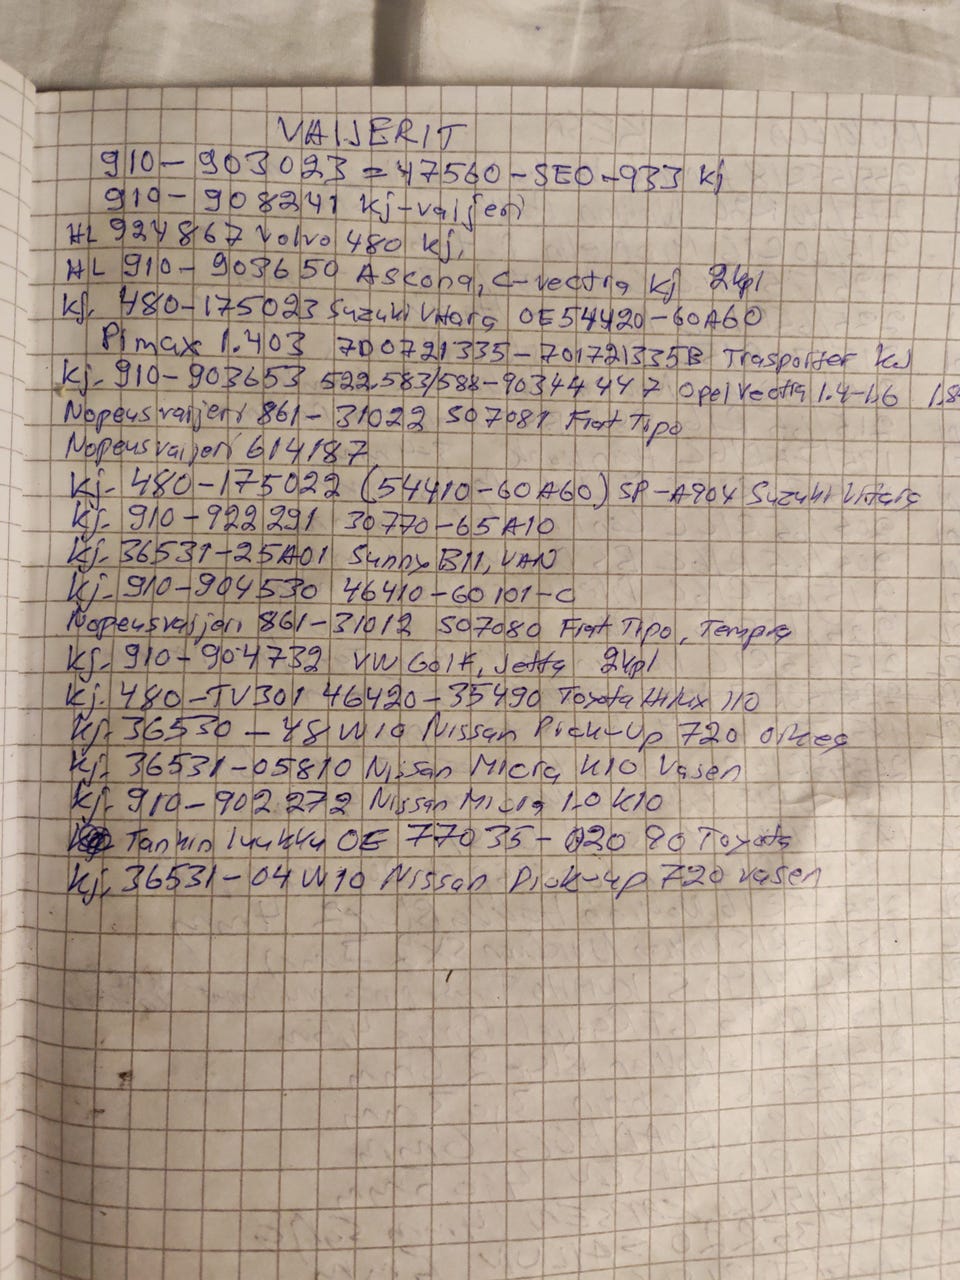 VAIJERIT
910-903023 = 47560-SE0-933 kj
910-908241 kj-vaijeri
HL 924867 Volvo 480 kj,
HL 910-903650 Ascona, C-vectra kj 2kpl
kj. 480-175023 Suzuki Vitara OE54420-60A60
Pimax 1.403 7D0721335-701721335B Trasporter kJ
kj. 910-903653 522.583/588-90344447 Opel Vectra 1.4-1.6 1.8
Nopeusvaijeri 861-31022 S07081 Fiat Tipo
Nopeusvaijeri 614187
kj. 480-175022 (54410-60A60) SP-A904 Suzuki Vitara
kj. 910-922291 30770-65A10
kj. 36531-25A01 Sunny B11, VAN
kj. 910-904530 46410-60101-C
Nopeusvaijeri 861-31012 S07080 Fiat Tipo, Tempra
kj. 910-904732 VW Golf, Jetta 2kpl
kj. 480-TV301 46420-35490 Toyota Hilux 110
kj. 36530-48W10 Nissan Pick-Up 720 oikea
kj. 36531-05B10 Nissan Micra K10 Vasen
kj. 910-902272 Nissan Micra 1.0 K10
Tankin luukku OE 77035-02090 Toyota
kj. 36531-04W10 Nissan Pick-up 720 vasen